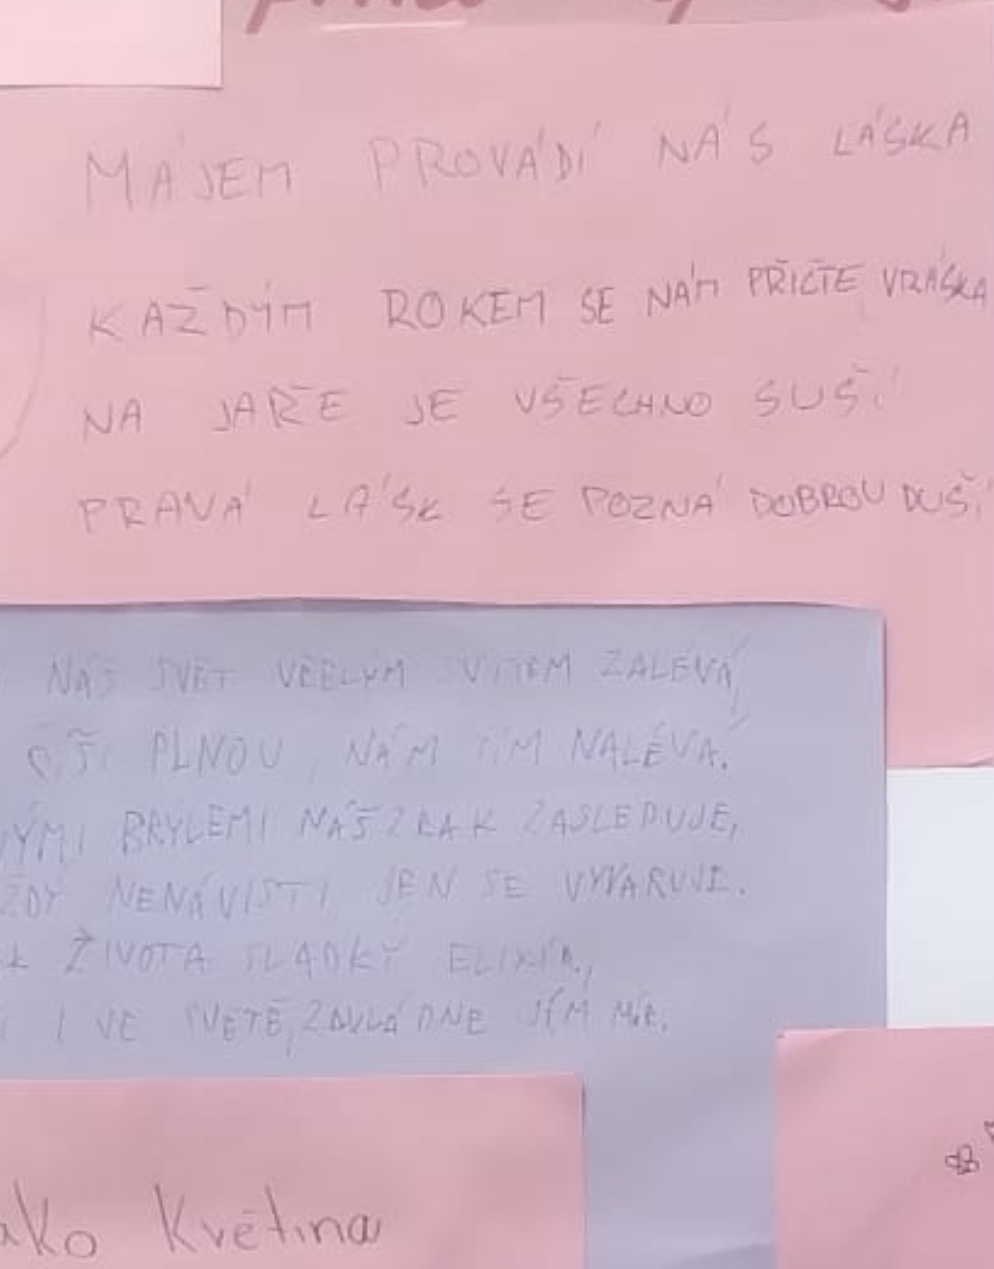 MÁJEM PROVÁDÍ NÁS LÁSKA
KAŽDÝM ROKEM SE NÁM PŘIČTE VRÁSKA
NA JAŘE JE VŠECHNO SUŠÍ
PRAVÁ LÁSK SE POZNÁ DOBROU DUŠÍ
NÁŠ SVĚT VCELÝM SVITEM ZALÉVÁ,
ČÍŠI PLNOU, NÁM TÍM NALÉVÁ.
VÝMI BRÝLEMI NÁŠ ZRAK ZASLEPUJE,
ŽDÝ NENÁVISTI JEN SE VYVARUJE.
K ŽIVOTA SLADKÝ ELIXÍR,
I VE SVĚTĚ, ZAVLÁDNE JÍM MÍR.
ako Květina